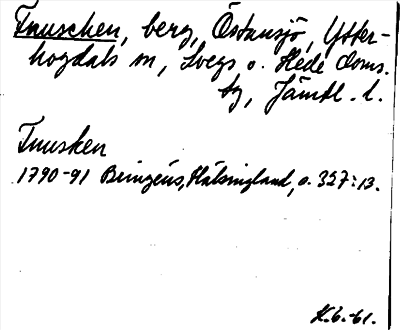 Tnuschen, berg, Östansjö, Ytter-
hogdals sn, Svegs o. Hede doms.
tg, Jämtl. l.
Tnusken
1790-91 Buingéus, Hälsingland, s. 327:13.
H.b.-61.